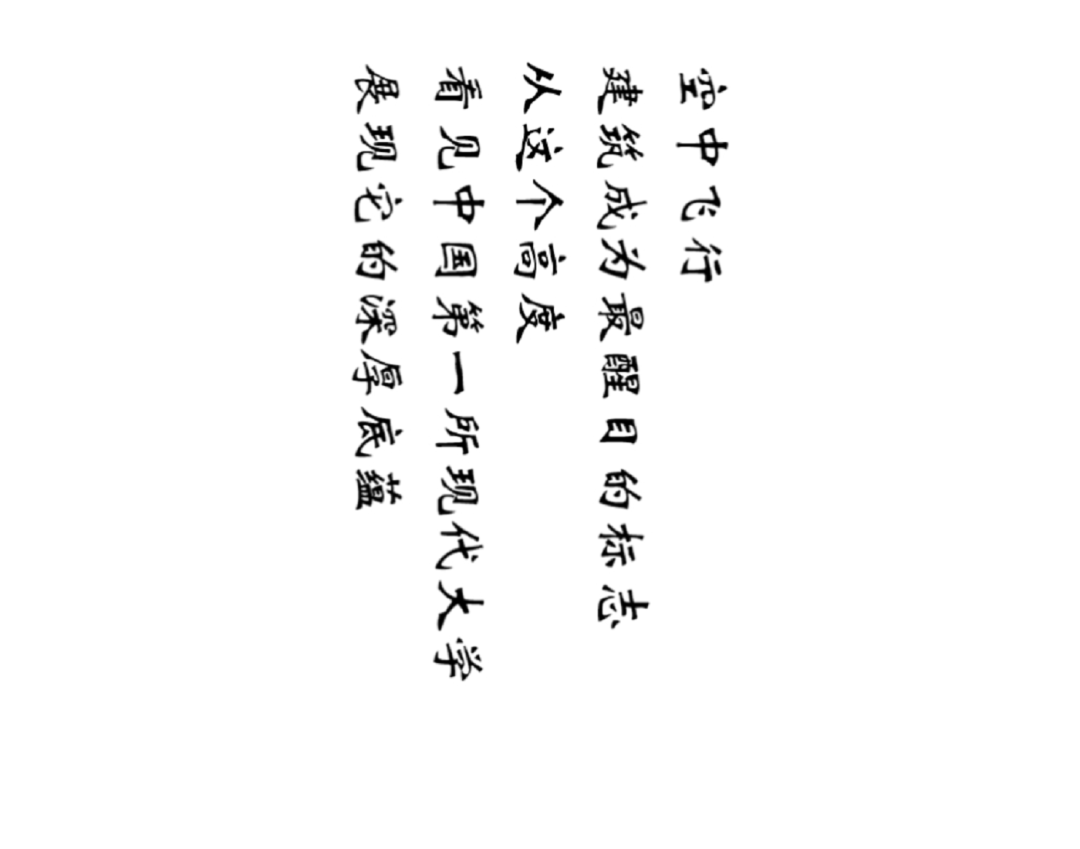 空中飞行
建筑成为最醒目的标志
从这个高度
看见中国第一所现代大学
展现它的深厚底蕴